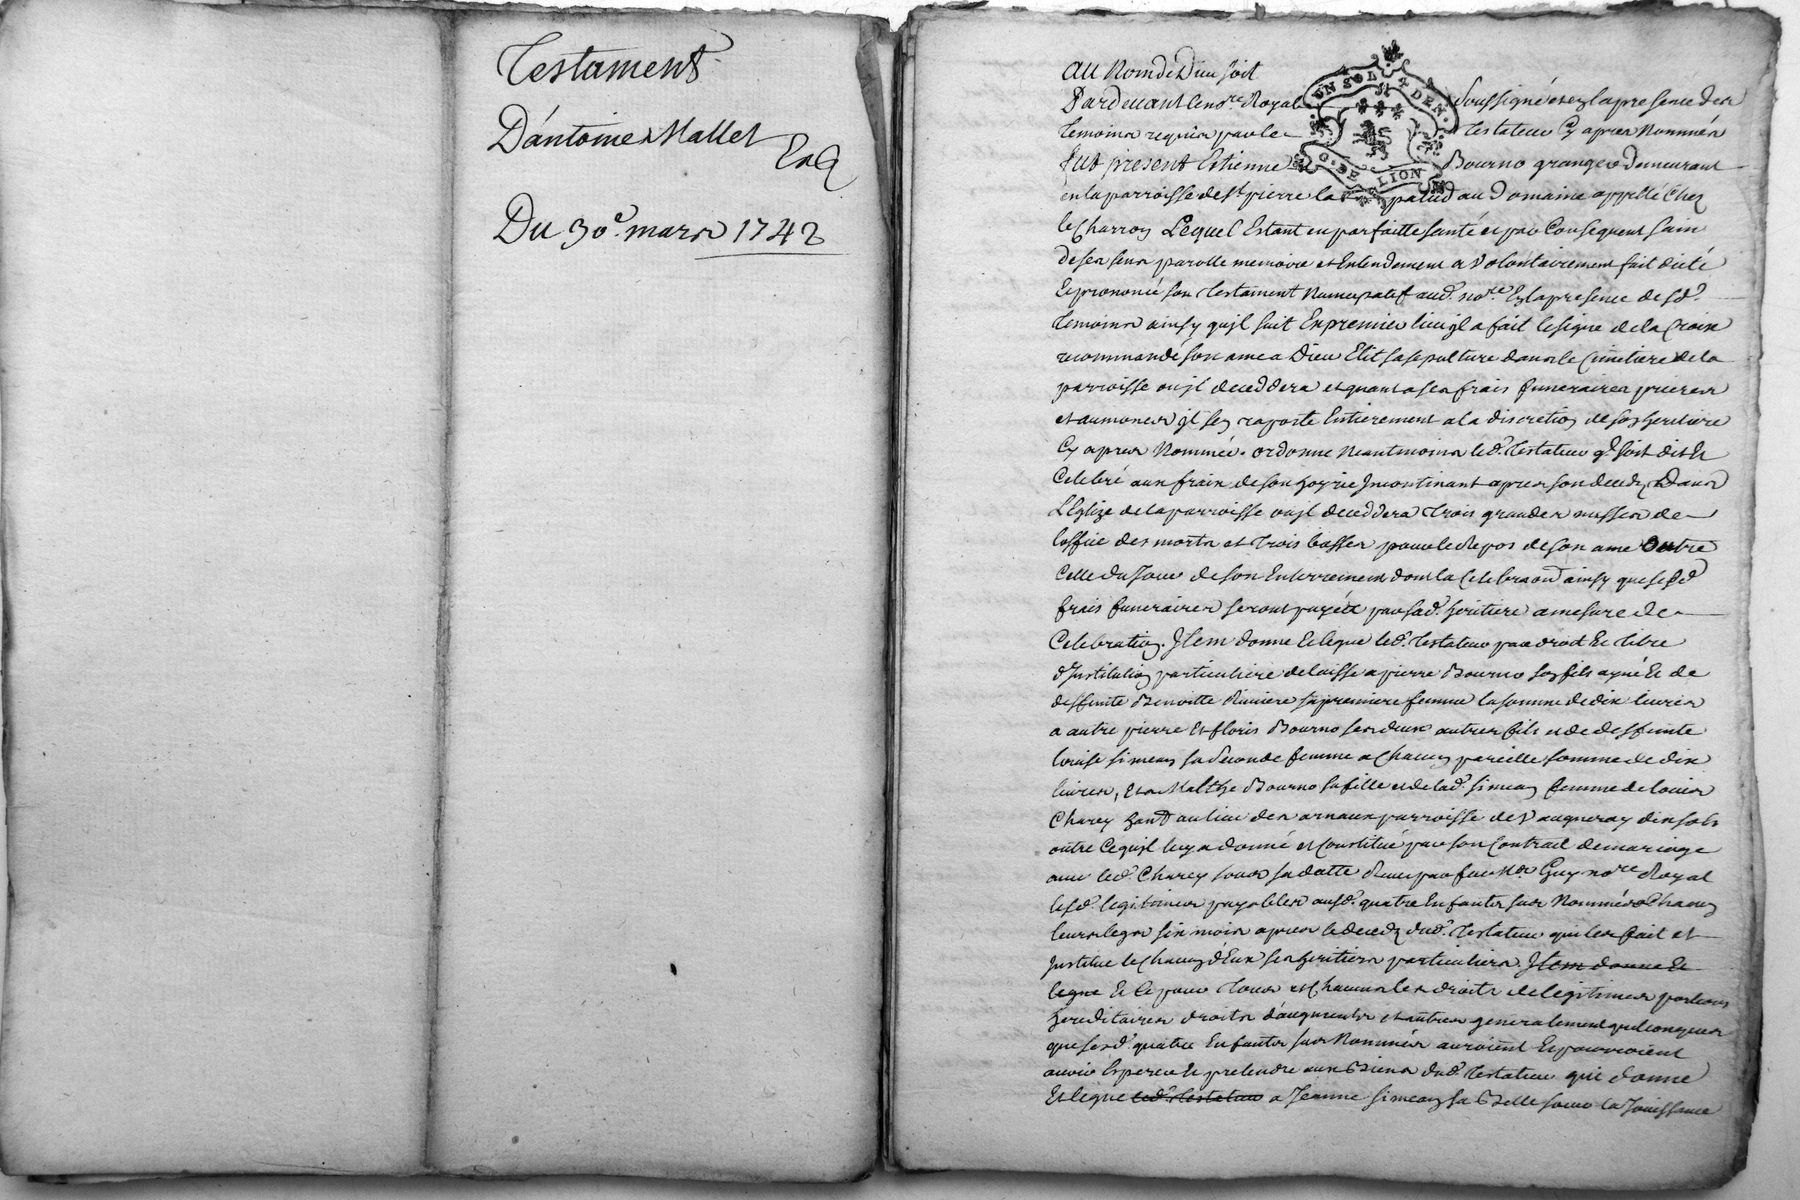 Testament
D'antoine Mallet
Du 30e. mars 1742
UN SOL 4 DEN.
G. DE LION
Au Nom de Dieu soit
Pardevant le nore Royal soussigné et en la presence des
temoins requis par le testateur Cy apres Nommés
fut present Estienne Bourno granger demeurant
en la parroisse de st pierre la palud au Domaine appellé Chez
le Charron Lequel Estant en parfaitte santé et par Consequent sain
de ses sens parolle memoire et Entendement a volontairement fait dicté
et prononcé son testament Nuncupatif aud. nore. En la presence desd.
temoins ainsy qu'jl suit En premier lieu jl a fait le signe de la Croix
recommandé son ame a Dieu Elit sa sepulture dans le Cimetiere de la
parroisse ou jl deceddera et quant a ses frais funeraires prieres
et aumones jl s'en raporte Entierement a la discretion de son heritiere
Cy apres Nommée. ordonne Neantmoins led. testateur ql soit dit Et
Celebré aux frais de son hoyrie Jncontinant apres son deceds Dans
L'Eglize de la parroisse ou jl deceddera trois grandes messes de
l'office des morts et trois basses pour le repos de son ame outre
Celle du Jour de son Enterrement dont la Celebraon ainsy que sesd
frais funeraires seront payés par sad. heritiere a mesure de
Celebration. Jtem donne Et legue led. testateur par droit Et titre
d'Jnstitution particuliere delaisse a pierre Bourno son fils ayné Et de
deffunte Benoitte Riviere sa premiere femme la somme de dix livres
a autre pierre Et floris Bourno ses deux autres fils et de deffunte
louise simean sa seconde femme a Chacun pareille somme de dix
livres, Et a Malthe Bourno sa fille et de lad. simean femme de louis
Charey hant au lieu des arnaux parroisse de vaugneray dix sols
outre Ce qu'jl luy a donné et Constitué par son Contract de mariage
avec led. Charey sous sa datte Receu par feu Me Guy nore Royal
lesd. legitimes payables ausd. quatre Enfants sus Nommés a Chacun
leurs legs six mois apres le deceds dud. testateur qui les fait et
Jnstitue Chacun d'Eux ses heritiers particuliers Jtem donne Et
legue Et Ce pour tous et Chacuns les droits de legitimes portions
hereditaires droits d'augments et autres generalement quelconques
que sesd. quatre Enfants sus Nommés auroient Et pourroient
avoir Esperer Et pretendre aux Biens dud. testateur qui donne
Et legue led. testateur a Jeanne simean sa Belle sœur la Jouissance